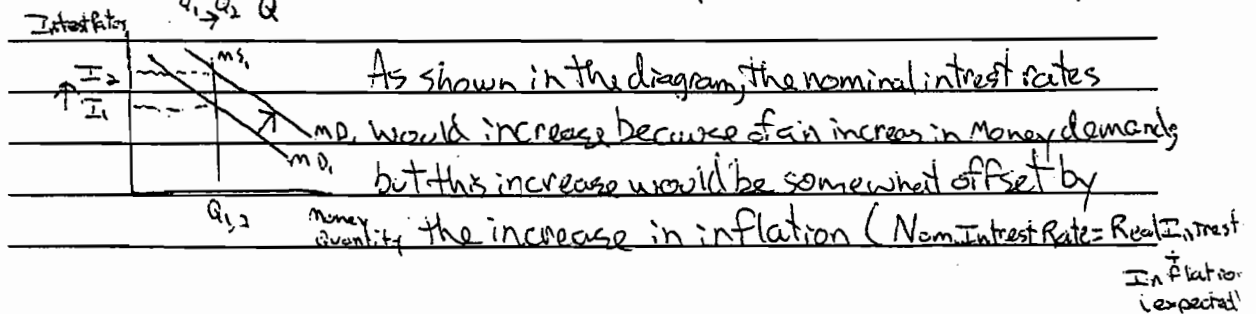 Q1 → Q2 Q
Intrest Rates
MS1
I2
↑ I1
MD1
Q1,2
Money
Quantity
As shown in the diagram, the nominal intrest rates
MD, would increase because of an increas in Money demand,
but this increase would be somewhat offset by
the increase in inflation (Nom. Intrest Rate = Real Intrest
+
Inflation
(expected)